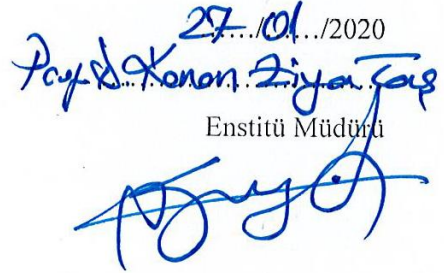 27.../01.../2020
Prof. Dr. Kenan Ziya Taş
Enstitü Müdürü